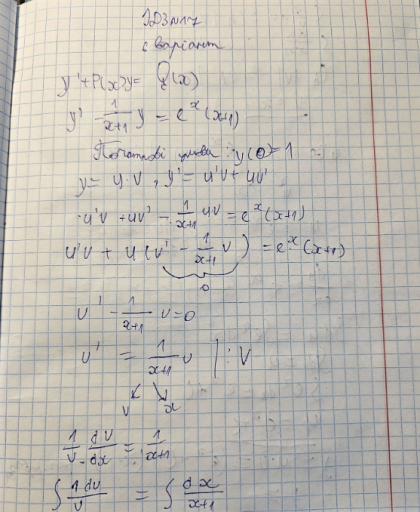 ІДЗ №17
6 варіант
y' + P(x)y = Q(x)
y' - 1/(x+1) y = e^x (x+1)
Початкові умова: y(0) = 1
y = u·v, y' = u'v + uv'
u'v + uv' - 1/(x+1) uv = e^x (x+1)
u'v + u(v' - 1/(x+1) v) = e^x (x+1)
0
v' - 1/(x+1) v = 0
v' = 1/(x+1) v | : V
v x
1/v · dv/dx = 1/(x+1)
∫ 1 dv/v = ∫ dx/(x+1)